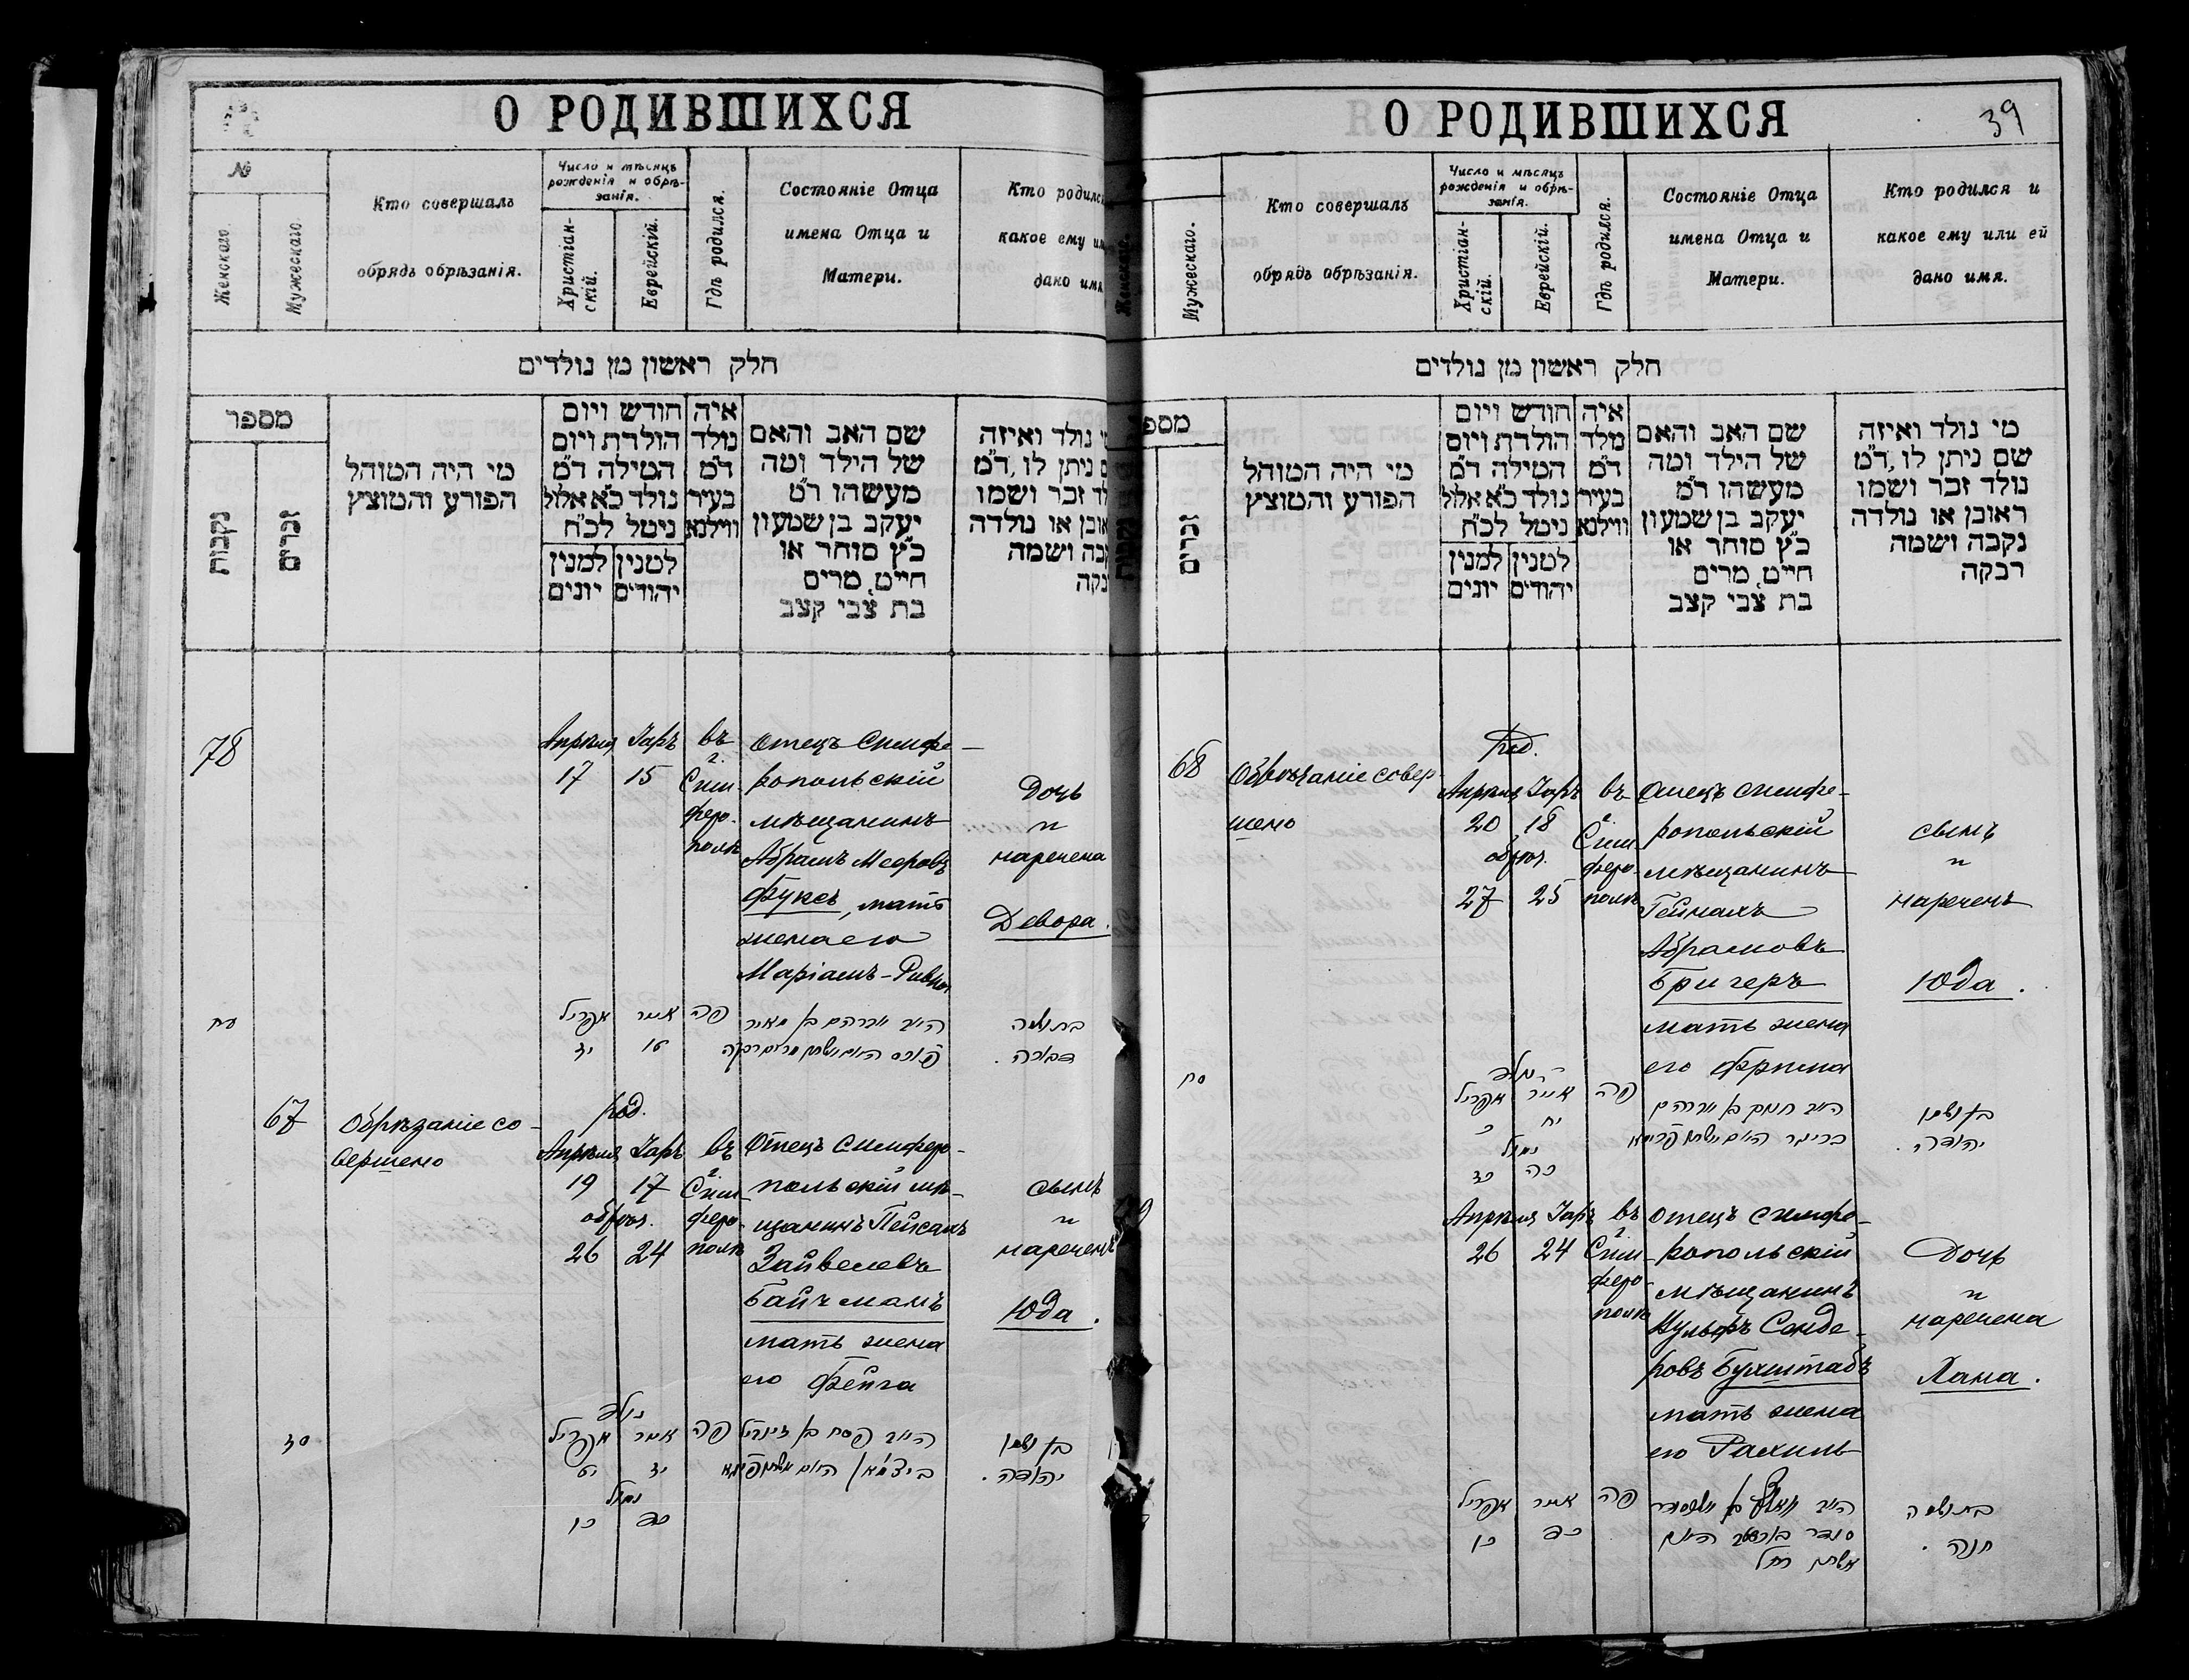 О РОДИВШИХСЯ
№
Женскаго.
Мужескаго.
Кто совершалъ
обрядъ обрѣзанія.
Число и мѣсяцъ
рожденія и обрѣ-
занія.
Христіан-
скій.
Еврейскій.
Гдѣ родился.
Состояніе Отца
имена Отца и
Матери.
Кто родилс
какое ему им
дано имя.
חלק ראשון מן נולדים
מספר
נקבות
זכרים
מי היה המוהל
הפורע והמוצץ
חודש ויום
הולדת ויום
המילה ד״מ
נולד כ״א אלול
ניטל לכ״ח
למנין יונים
למנין יהודים
איה
נולד
ד״מ
בעיר
ווילנא
שם האב והאם
של הילד ומה
מעשהו ר״מ
יעקב בן שמעון
כ״ץ סוחר או
חייט, מרים
בת צבי קצב
נולד ואיזה
ניתן לו, ד״מ
זכר ושמו
או נולדה
ושמה
78
Апрѣля 17
Іаръ 15
въ г. Сим-
феро-
полѣ
Отецъ Симфе-
ропольскій
мѣщанинъ
Абрамъ Мееровъ
Фуксъ, мать
жена его
Маріамъ-Ривка
Дочь
и
наречена
Девора.
פה
אייר
אפריל
דבורה.
67
Обрѣзаніе со-
вершено
род.
Апрѣля Іаръ
19 17
обрѣз.
26 24
въ г. Сим-
феро-
полѣ
Отецъ Симферо-
польскій мѣ-
щанинъ Пейсахъ
Зайвелевъ
Байчманъ
мать жена
его Фейга
сынъ
и
нареченъ
Юда.
נולד
פה
אייר
אפריל
נמול
יהודה.
О РОДИВШИХСЯ
39
Женскаго.
Мужескаго.
Кто совершалъ
обрядъ обрѣзанія.
Число и мѣсяцъ
рожденія и обрѣ-
занія.
Христіан-
скій.
Еврейскій.
Гдѣ родился.
Состояніе Отца
имена Отца и
Матери.
Кто родился и
какое ему или ей
дано имя.
חלק ראשון מן נולדים
מספ
זכרים
מי היה המוהל
הפורע והמוצץ
חודש ויום
הולדת ויום
המילה ד״מ
נולד כ״א אלול
ניטל לכ״ח
למנין יונים
למנין יהודים
איה
נולד
ד״מ
בעיר
ווילנא
שם האב והאם
של הילד ומה
מעשהו ר״מ
יעקב בן שמעון
כ״ץ סוחר או
חייט, מרים
בת צבי קצב
מי נולד ואיזה
שם ניתן לו, ד״מ
נולד זכר ושמו
ראובן או נולדה
נקבה ושמה
רבקה
68
Обрѣзаніе совер-
шено
род.
Апрѣля Іаръ
20 18
обрѣз.
27 25
въ г. Сим-
феро-
полѣ
Отецъ Симфе-
ропольскій
мѣщанинъ
Абрамовъ
Бригеръ
мать жена
его Фрима
сынъ
и
нареченъ
Юда.
נולד
פה
אייר
אפריל
נמול
יהודה.
Апрѣля Іаръ
26 24
въ г. Сим-
феро-
полѣ
Отецъ Симфе-
ропольскій
мѣщанинъ
Вульфъ Сенде-
ровъ Бухштабъ
мать жена
его Рахиль
Дочь
и
наречена
Хана.
פה
אייר
אפריל
כד
אשתו רחל
חנה.